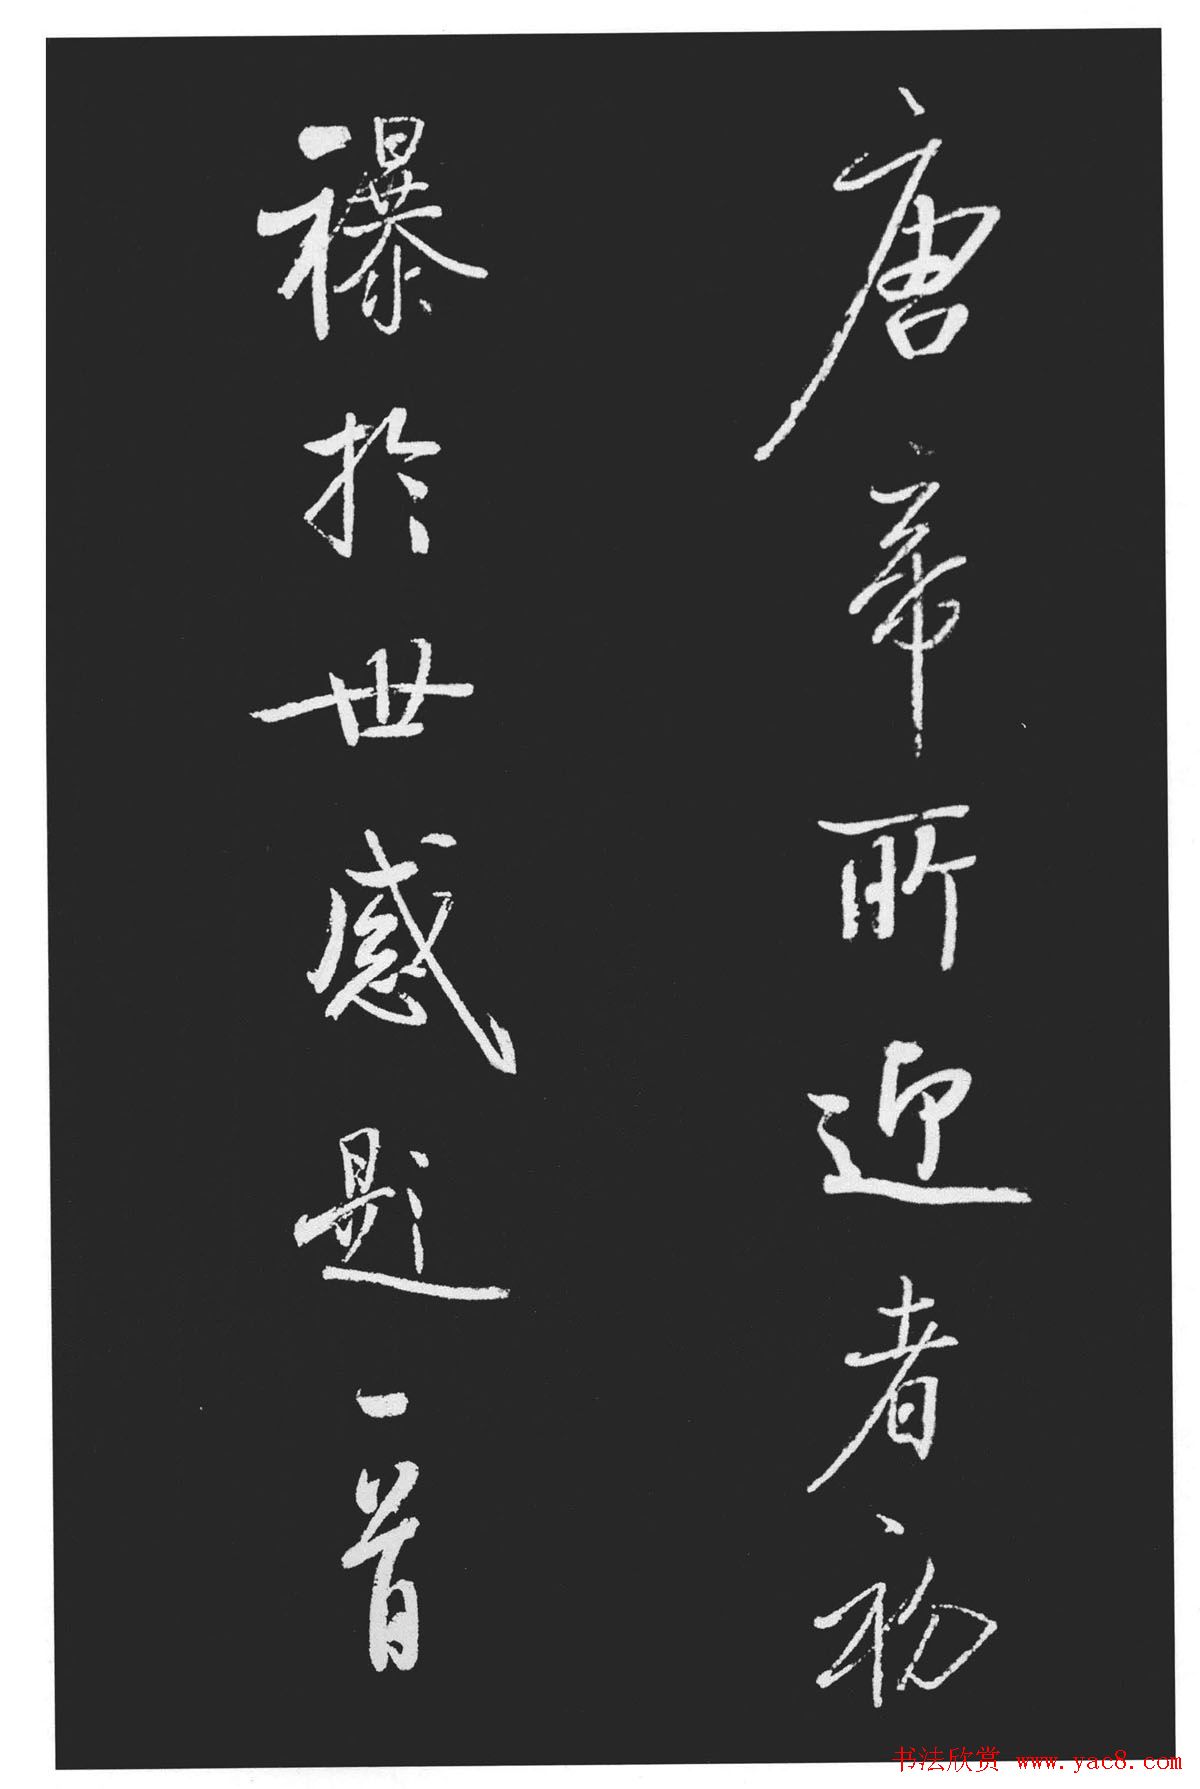 唐帝所迎者初
襮於世感題一首
书法欣赏 www.yac8.com